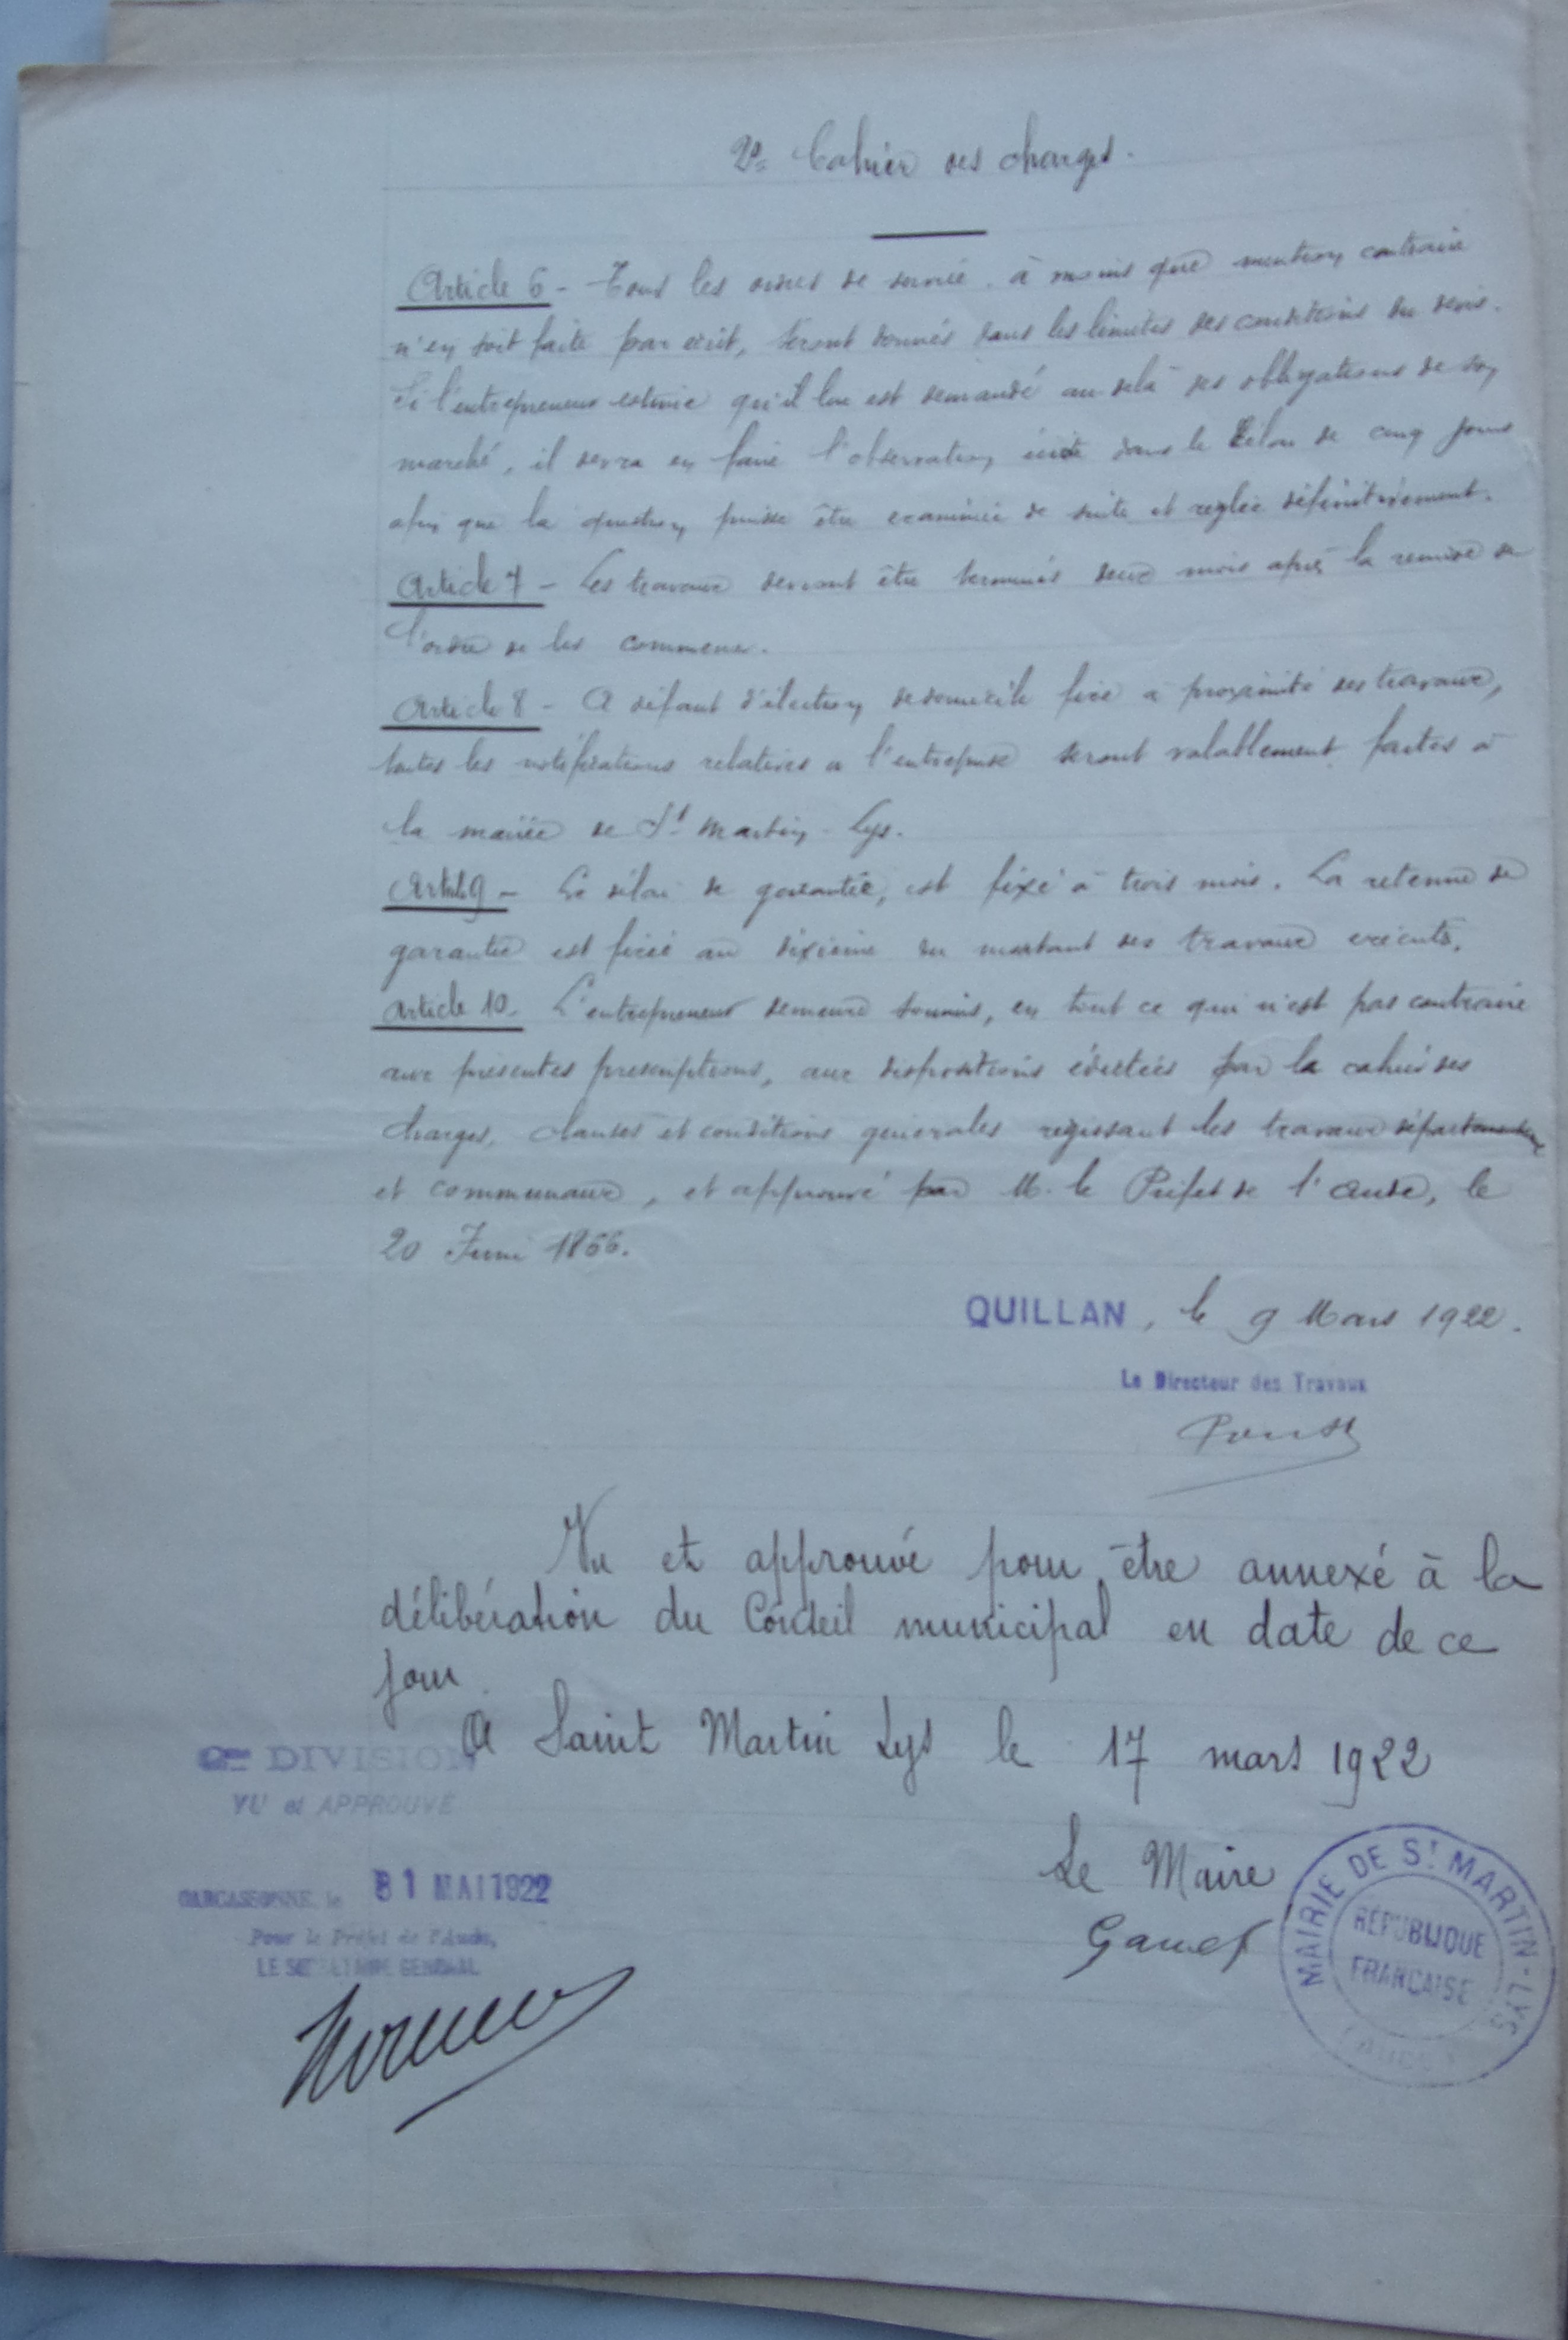 2º Cahier des charges.
Article 6 - Tous les ordres de service, à moins que mention contraire
n'en soit faite par écrit, seront donnés dans les limites des conditions du devis.
Si l'entrepreneur estime qu'il lui est demandé au delà des obligations de son
marché, il devra en faire l'observation écrite dans le délai de cinq jours
afin que la question puisse être examinée de suite et reglée définitivement.
Article 7 - Les travaux devront être terminés deux mois après la remise de
l'ordre de les commencer.
Article 8 - A défaut d'élection de domicile fixé à proximité des travaux,
toutes les notifications relatives a l'entreprise seront valablement faites à
la mairie de St Martin-Lys.
Article 9 - Le délai de garantie, est fixé à trois mois. La retenue de
garantie est fixée au dixième du montant des travaux exécutés.
Article 10. L'entrepreneur demeure soumis, en tout ce qui n'est pas contraire
aux présentes prescriptions, aux dispositions édictées par le cahier des
charges, clauses et conditions générales régissant les travaux départementaux
et communaux, et approuvé par M. le Préfet de l'Aude, le
20 Juin 1866.
QUILLAN, le 9 Mars 1922.
Le Directeur des Travaux
Vu et approuvé pour être annexé à la
délibération du Conseil municipal en date de ce
jour.
A Saint Martin Lys le 17 mars 1922
DIVISION
VU et APPROUVÉ
CARCASSONNE, le 31 MAI 1922
Pour le Préfet de l'Aude,
LE SECRETAIRE GENERAL
Le Maire
MAIRIE DE St MARTIN-LYS
RÉPUBLIQUE
FRANÇAISE
(AUDE)